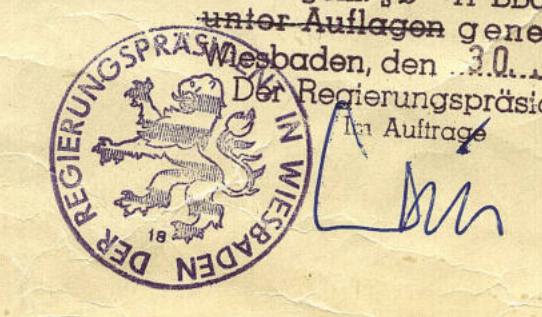 unter Auflagen gene
Wiesbaden, den 30.
Der Regierungspräsi
Im Auftrage
DER REGIERUNGSPRÄSIDENT IN WIESBADEN
18